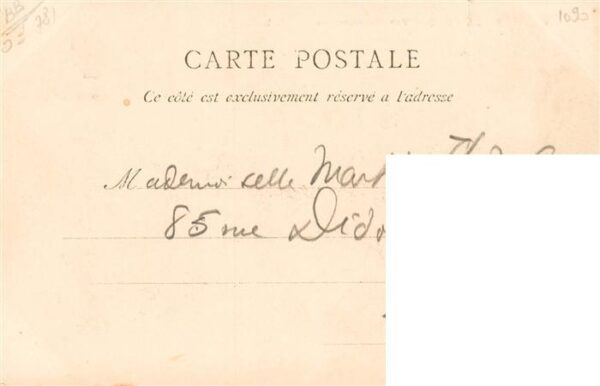 BB
781
1090
CARTE POSTALE
Ce côté est exclusivement réservé a l'adresse
Mademoiselle
85 rue